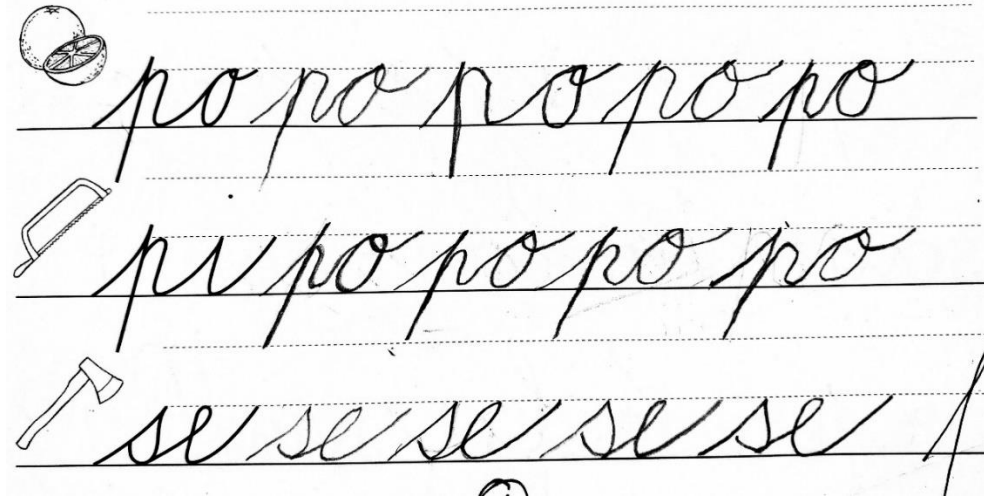 po po po po po
pi po po po po
se se se se se